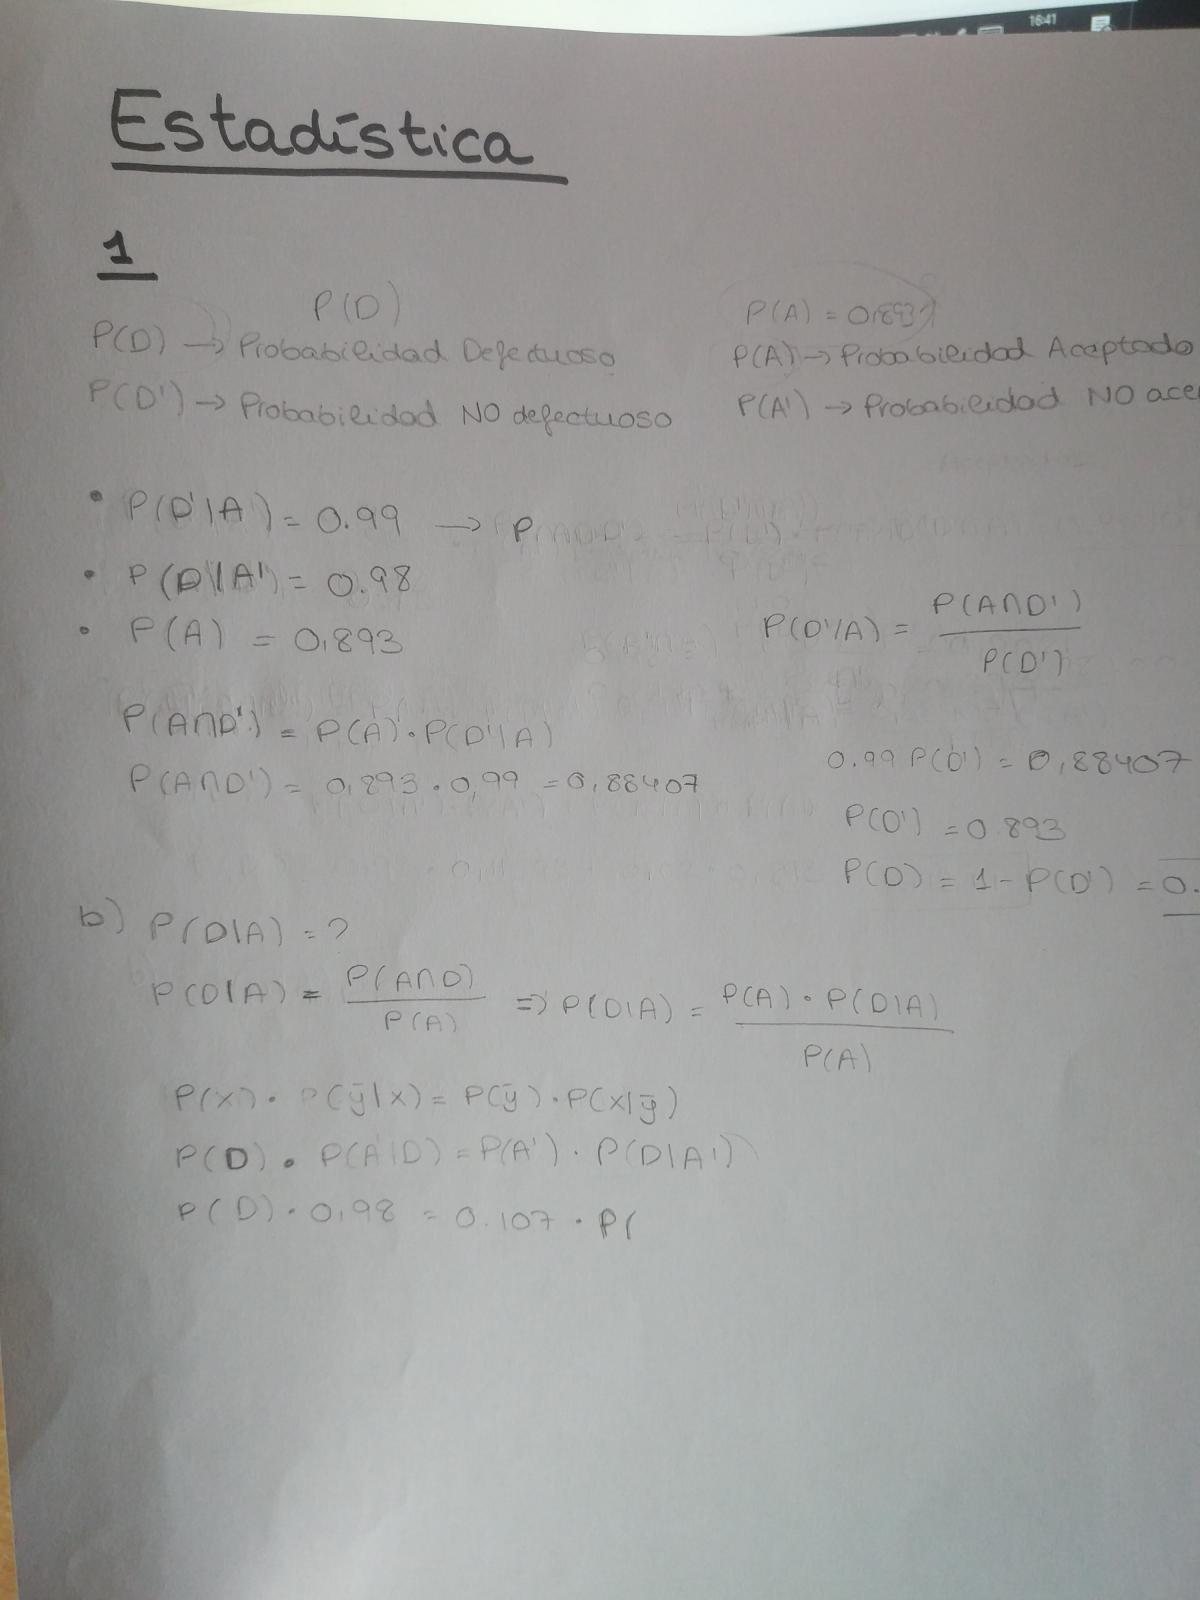 16:41
Estadística
1
P(D)
P(D) → Probabilidad Defectuoso
P(D') → Probabilidad NO defectuoso
P(A) = 0,893
P(A) → Probabilidad Aceptado
P(A') → Probabilidad NO ace
• P(D'|A) = 0.99 → P
• P(D|A') = 0.98
• P(A) = 0,893
P(A∩D') = P(A) · P(D'|A)
P(A∩D') = 0,893 · 0,99 = 0,88407
P(D'/A) = P(A∩D') / P(D')
0.99 P(D') = 0,88407
P(D') = 0.893
P(D) = 1 - P(D') = 0.
b) P(D|A) = ?
P(D|A) = P(A∩D) / P(A) => P(D|A) = P(A) · P(D|A) / P(A)
P(x) · P(ȳ|x) = P(ȳ) · P(x|ȳ)
P(D) · P(A'|D) = P(A') · P(D|A')
P(D) · 0,98 = 0.107 · P(